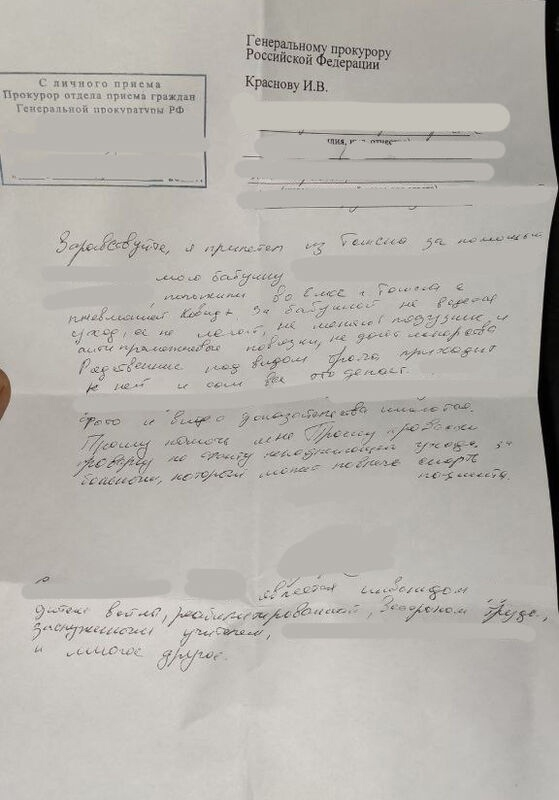 Генеральному прокурору
Российской Федерации
Краснову И.В.
С личного приема
Прокурор отдела приема граждан
Генеральной прокуратуры РФ
Здравствуйте, я прилетел из Томска за помощью
мою бабушку
положили во г. Томска с
пневмонией Ковид. За бабушкой не ведется
уход, ее не моют, не меняют подгузник и
повязки, не дают лекарства
Родственник под видом приходит
к ней и сам все это делает.
Фото и видео доказательства имеются.
Прошу помочь мне Прошу провести
проверку по факту ненадлежащего ухода за
больными, который может повлечь смерть
пациента.
является инвалидом
дитем войны, реабилитированной, Ветераном труда,
заслуженным учителем,
и многое другое.